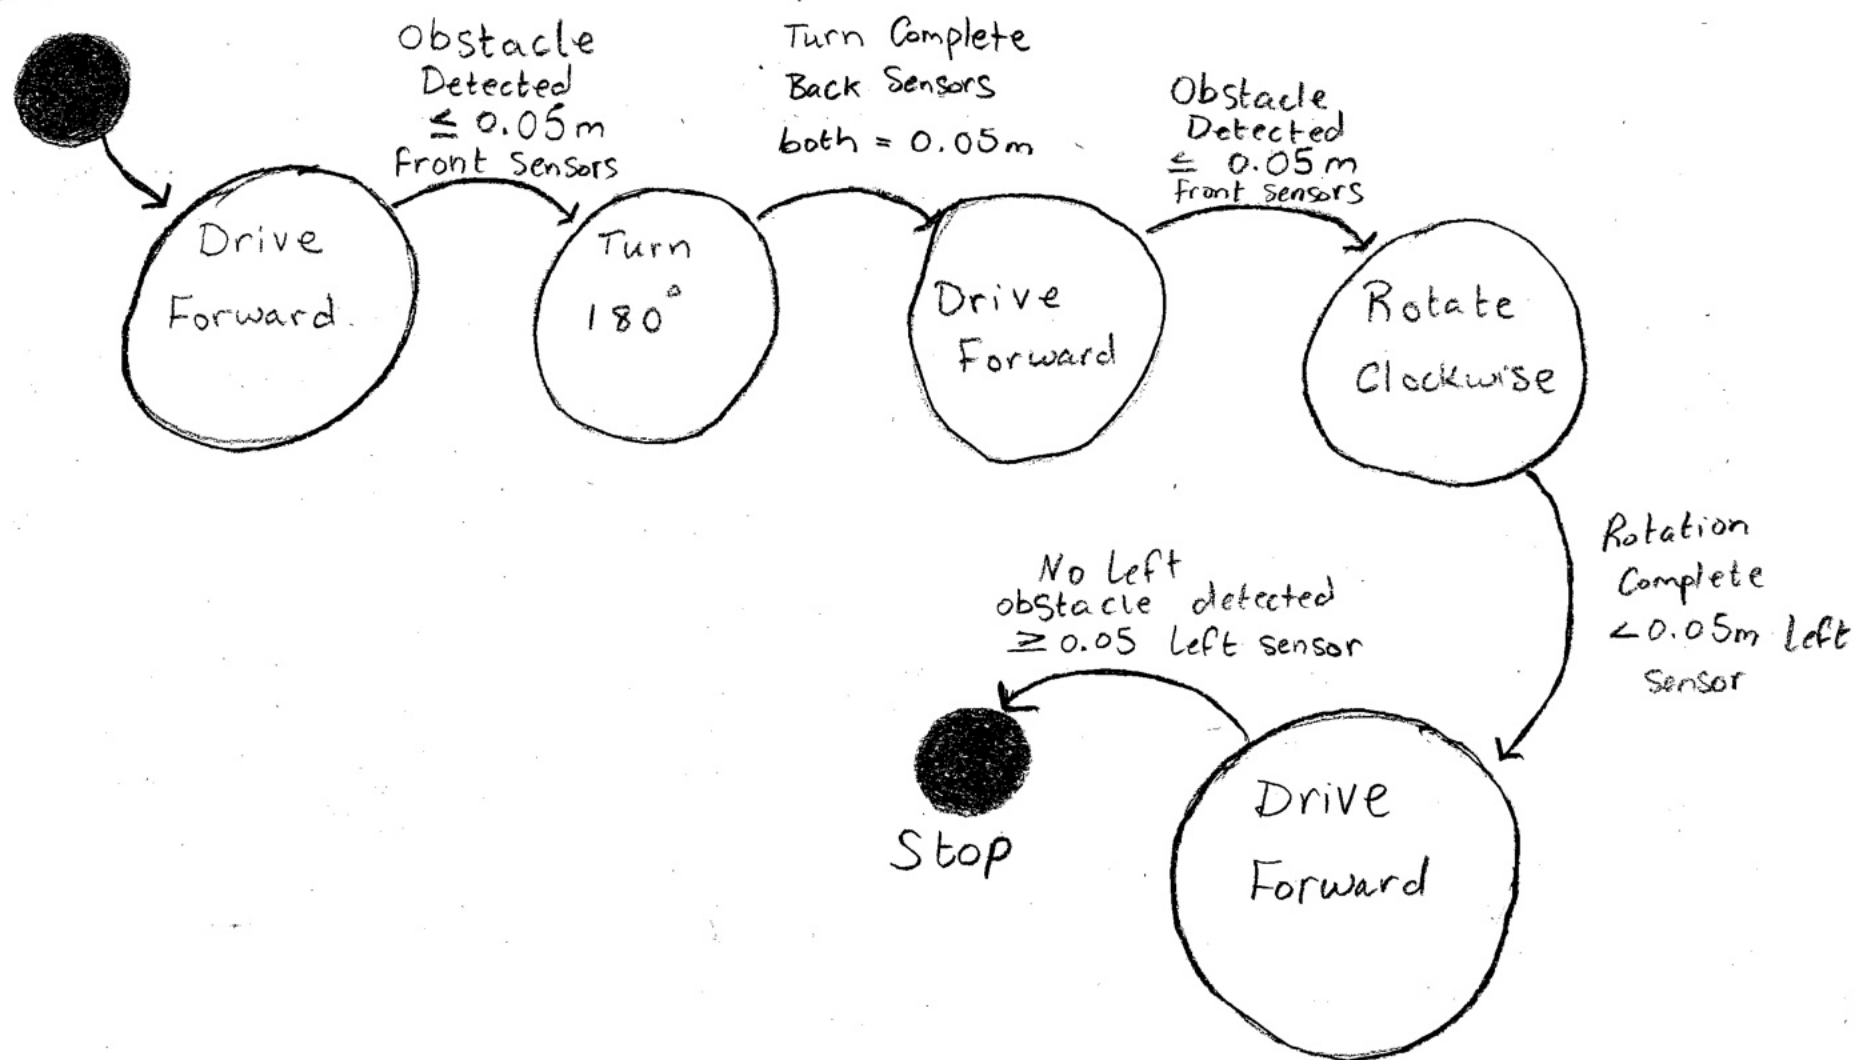 Obstacle
Detected
≤ 0.05m
Front Sensors
Turn Complete
Back Sensors
both = 0.05m
Obstacle
Detected
≤ 0.05m
Front sensors
Drive
Forward.
Turn
180°
Drive
Forward
Rotate
Clockwise
Rotation
Complete
<0.05m Left
Sensor
No Left
obstacle detected
≥ 0.05 Left sensor
Stop
Drive
Forward